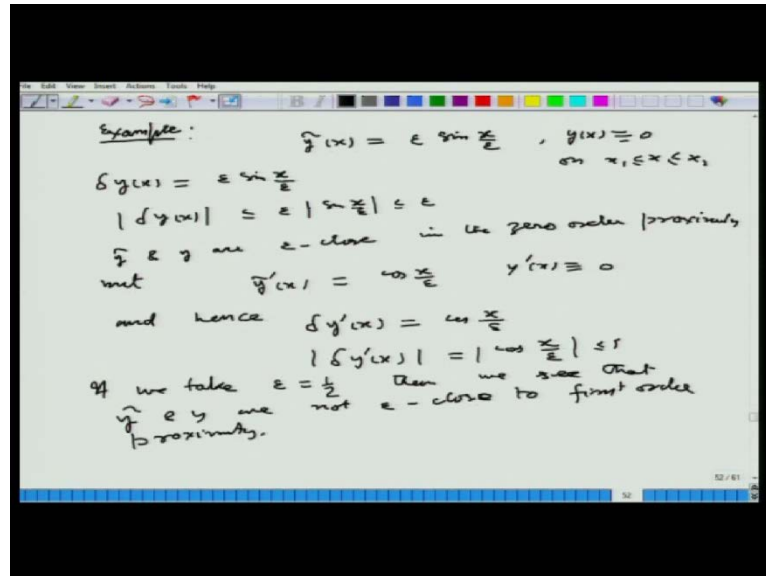 File Edit View Insert Actions Tools Help
Example: ỹ(x) = ε sin x/ε , y(x) ≡ 0
on x₁ ≤ x ≤ x₂
δy(x) = ε sin x/ε
|δy(x)| = ε |sin x/ε| ≤ ε
ỹ & y are ε-close in the zero order proximity
but ỹ'(x) = cos x/ε y'(x) ≡ 0
and hence δy'(x) = cos x/ε
|δy'(x)| = |cos x/ε| ≤ 1
If we take ε = 1/2 then we see that
ỹ & y are not ε-close to first order
proximity.
52 / 61
52